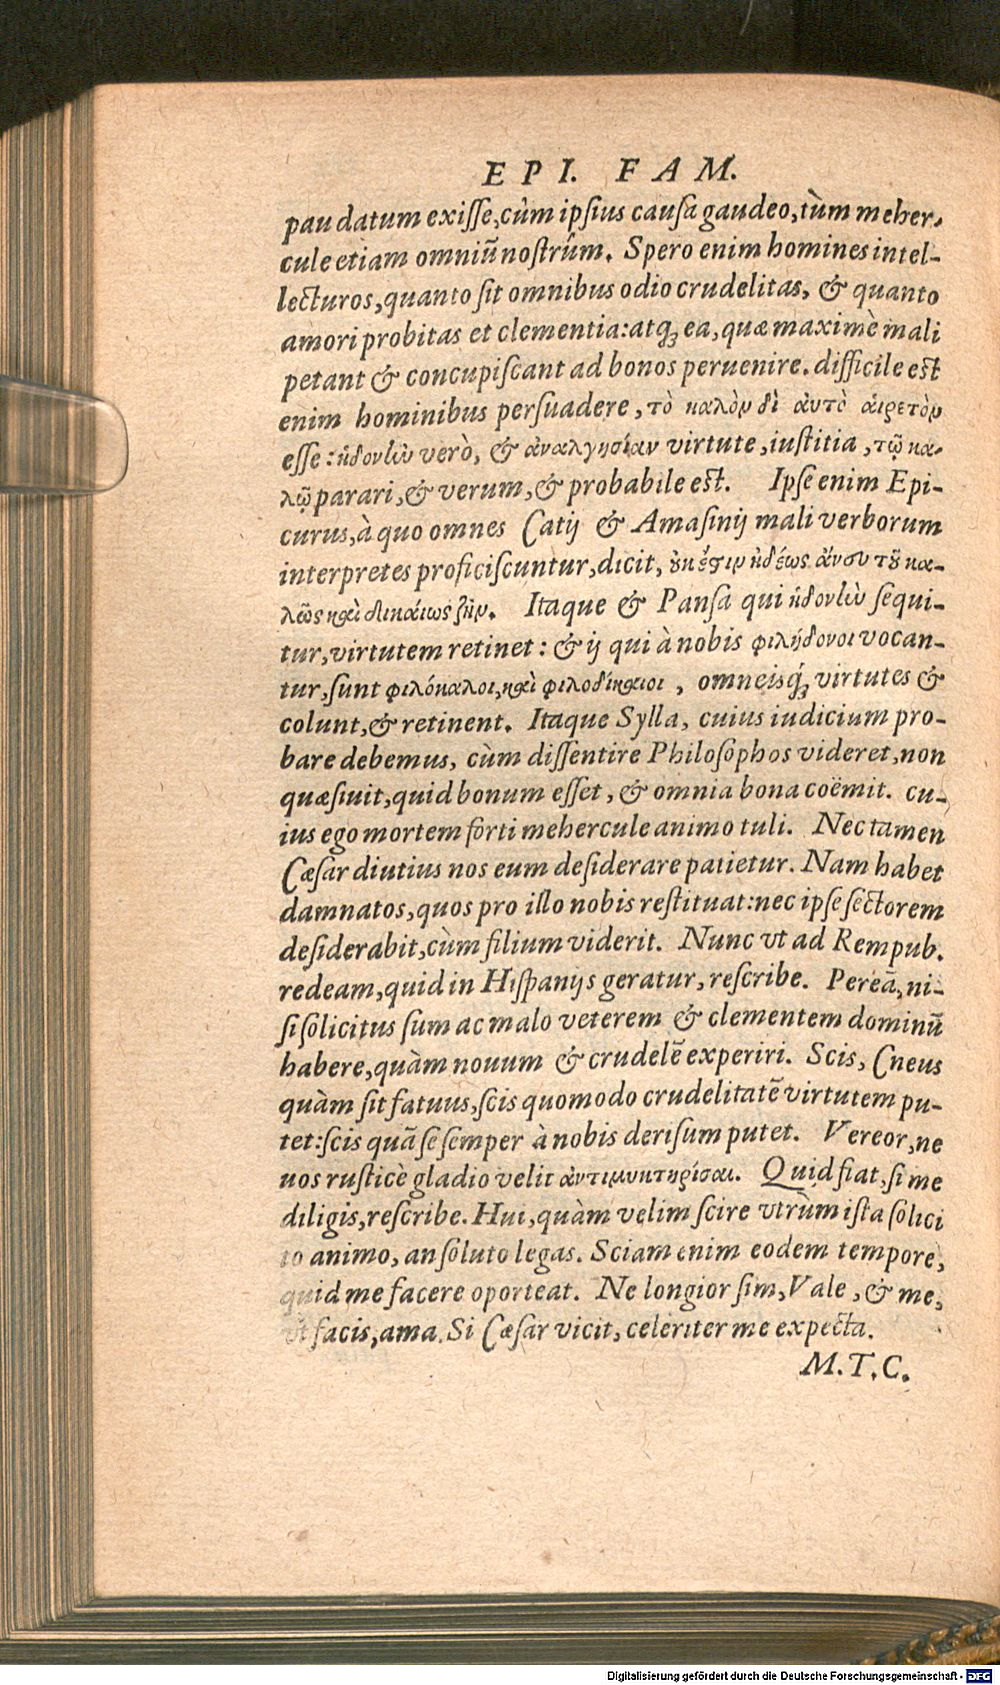 EPI. FAM.
paudatum exisse, cùm ipsius causa gaudeo, tùm meher-
cule etiam omniũ nostrûm. Spero enim homines intel-
lecturos, quanto sit omnibus odio crudelitas, & quanto
amori probitas et clementia: atq; ea, quæ maximè mali
petant & concupiscant ad bonos peruenire. difficile est
enim hominibus persuadere, τὸ καλὸν δὶ ἀυτὸ ἁιρετὸν
esse: ἡδονὴν verò, & ἀναλγησίαν virtute, iustitia, τῷ κα-
λῷ parari, & verum, & probabile est. Ipse enim Epi-
curus, à quo omnes Catij & Amasinij mali verborum
interpretes proficiscuntur, dicit, ὀυκ ἔστιν ἡδέως ἄνευ τȣ͂ κα-
λῶς καὶ δικάιως ζῆν. Itaque & Pansa qui ἡδονὴν sequi-
tur, virtutem retinet: & ij qui à nobis φιλήδονοι vocan-
tur, sunt φιλόκαλοι, καὶ φιλοδίκαιοι, omneisq́; virtutes &
colunt, & retinent. Itaque Sylla, cuius iudicium pro-
bare debemus, cùm dissentire Philosophos videret, non
quæsiuit, quid bonum esset, & omnia bona coëmit. cu-
ius ego mortem forti mehercule animo tuli. Nec tamen
Cæsar diutius nos eum desiderare patietur. Nam habet
damnatos, quos pro illo nobis restituat: nec ipse sectorem
desiderabit, cùm filium viderit. Nunc vt ad Rempub.
redeam, quid in Hispanijs geratur, rescribe. Pereã, ni-
si solicitus sum ac malo veterem & clementem dominũ
habere, quàm nouum & crudelẽ experiri. Scis, Cneus
quàm sit fatuus, scis quomodo crudelitatẽ virtutem pu-
tet: scis quã se semper à nobis derisum putet. Vereor, ne
nos rusticè gladio velit ἀντιμυκτηρίσαι. Quid fiat, si me
diligis, rescribe. Hui, quàm velim scire vtrùm ista solici
to animo, an soluto legas. Sciam enim eodem tempore,
quid me facere oporteat. Ne longior sim, Vale, & me,
vt facis, ama. Si Cæsar vicit, celeriter me expecta.
M.T.C.
Digitalisierung gefördert durch die Deutsche Forschungsgemeinschaft - DFG